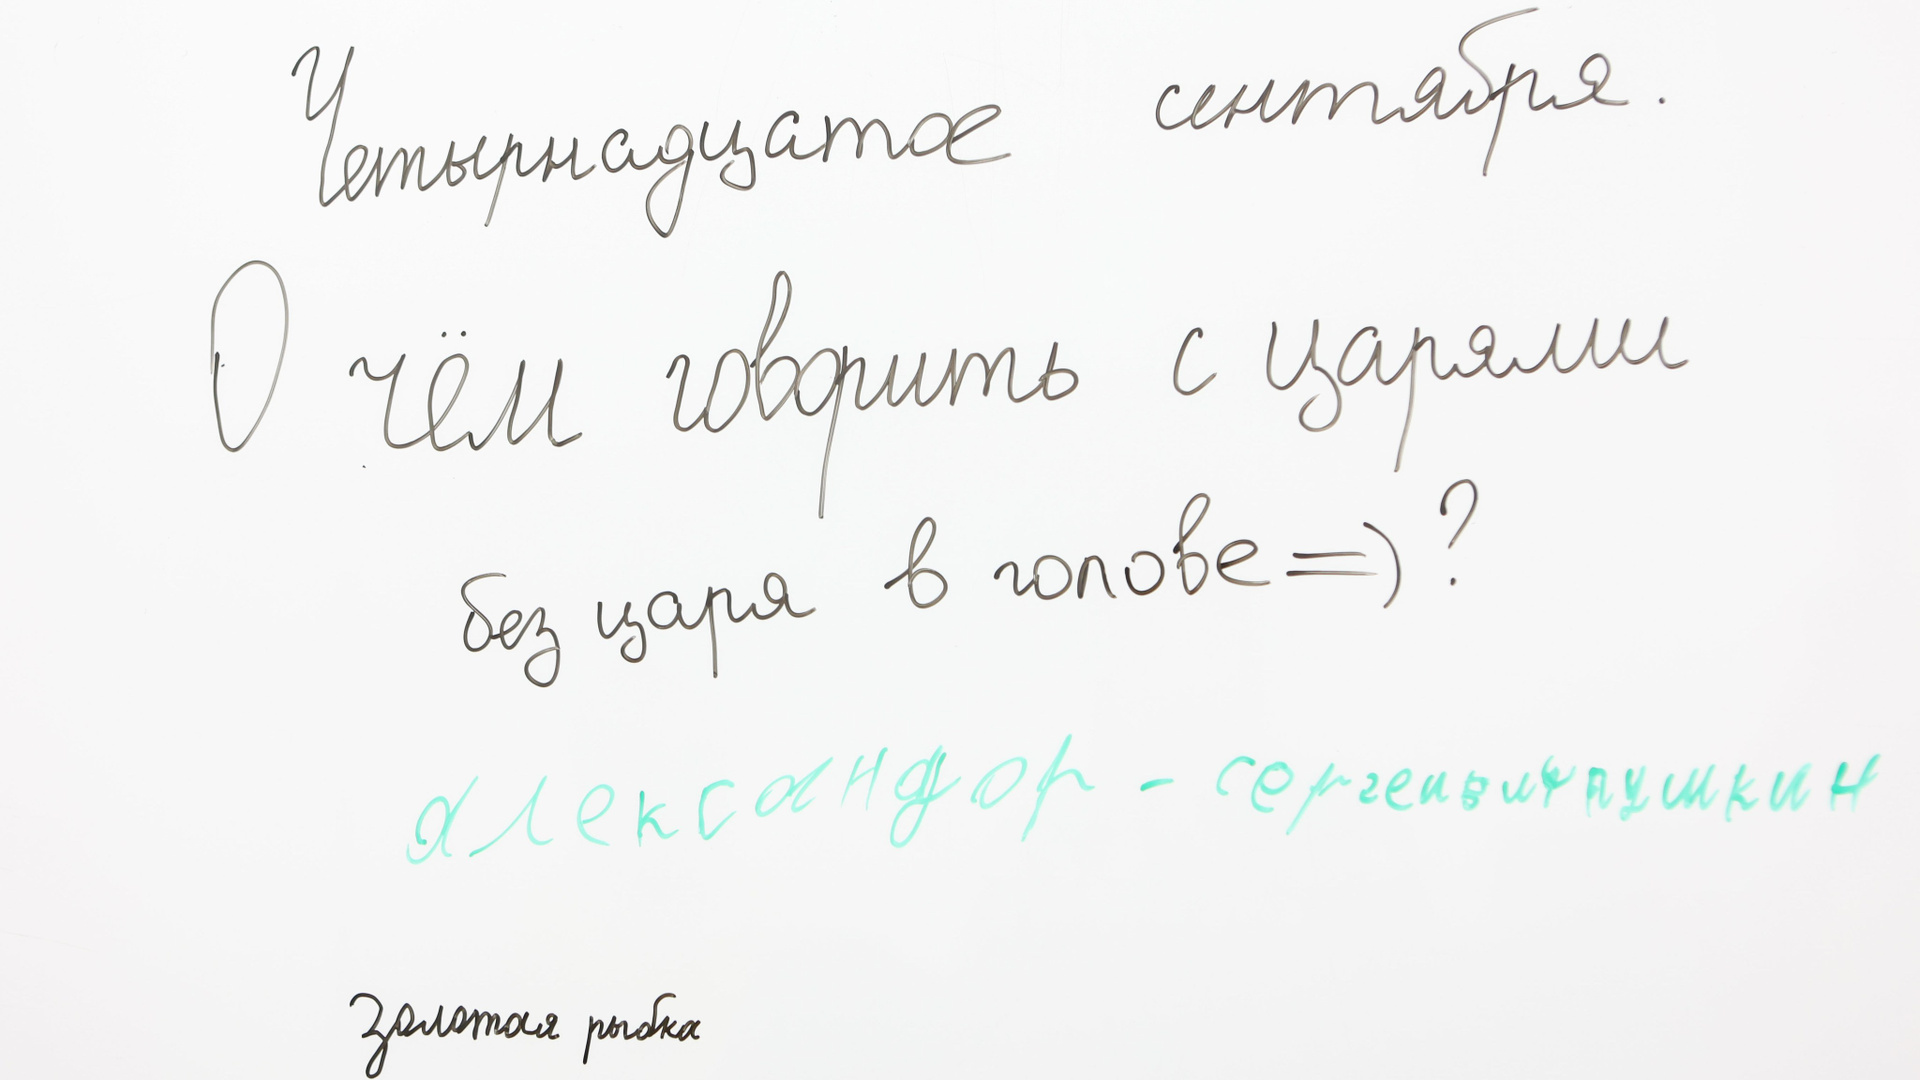 Четырнадцатое сентября.
О чём говорить с царями
без царя в голове=)?
александор - сергеивитчпушкин
Золотая рыбка